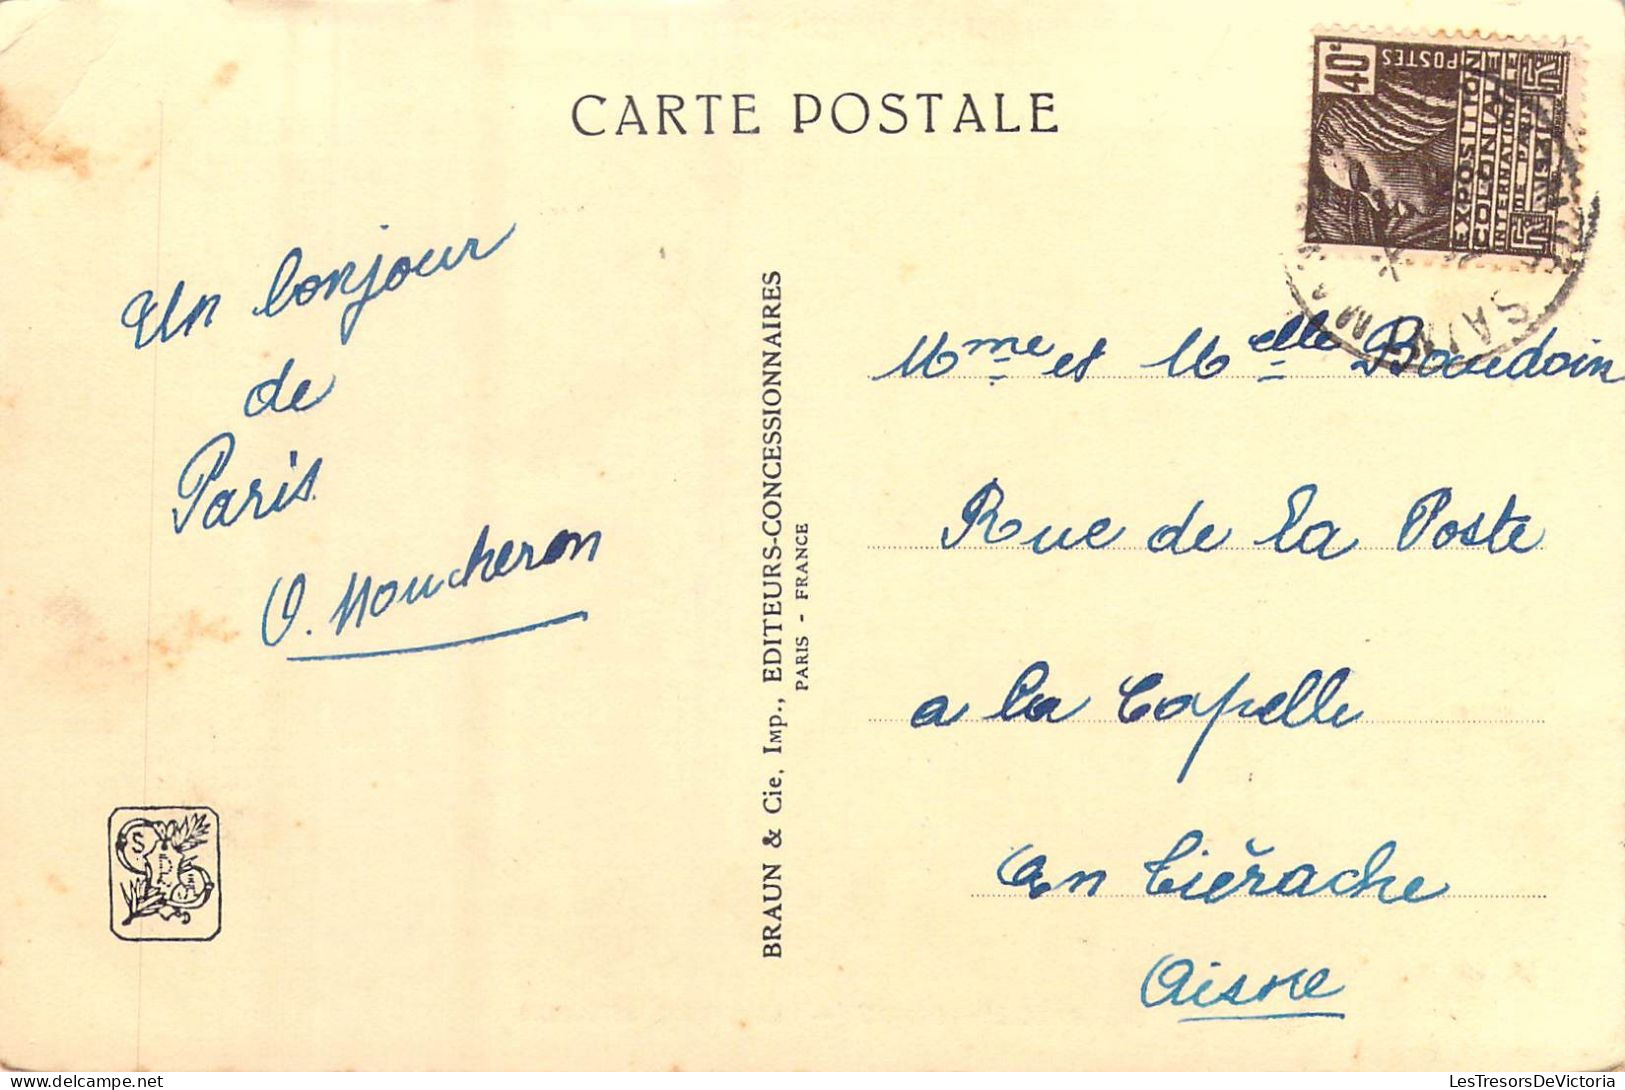 CARTE POSTALE
40c
POSTES
EXPOSITION
COLONIALE
INTERNATIONALE
DE PARIS
1931
RF RF
Un bonjour
de
Paris
O. Moucheron
BRAUN & Cie, Imp., EDITEURS-CONCESSIONNAIRES
PARIS - FRANCE
Mme et Melle Baudoin
Rue de la Poste
a la Capelle
en Tiérache
Aisne
LesTresorsDeVictoria
https://www.delcampe.net